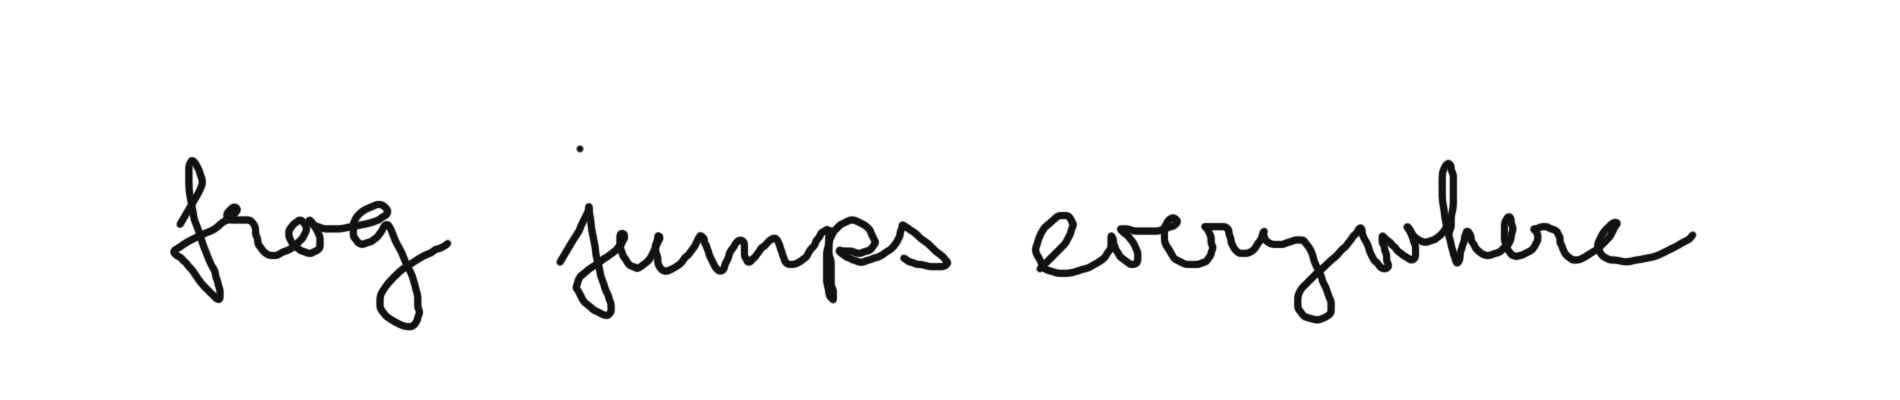 frog jumps everywhere